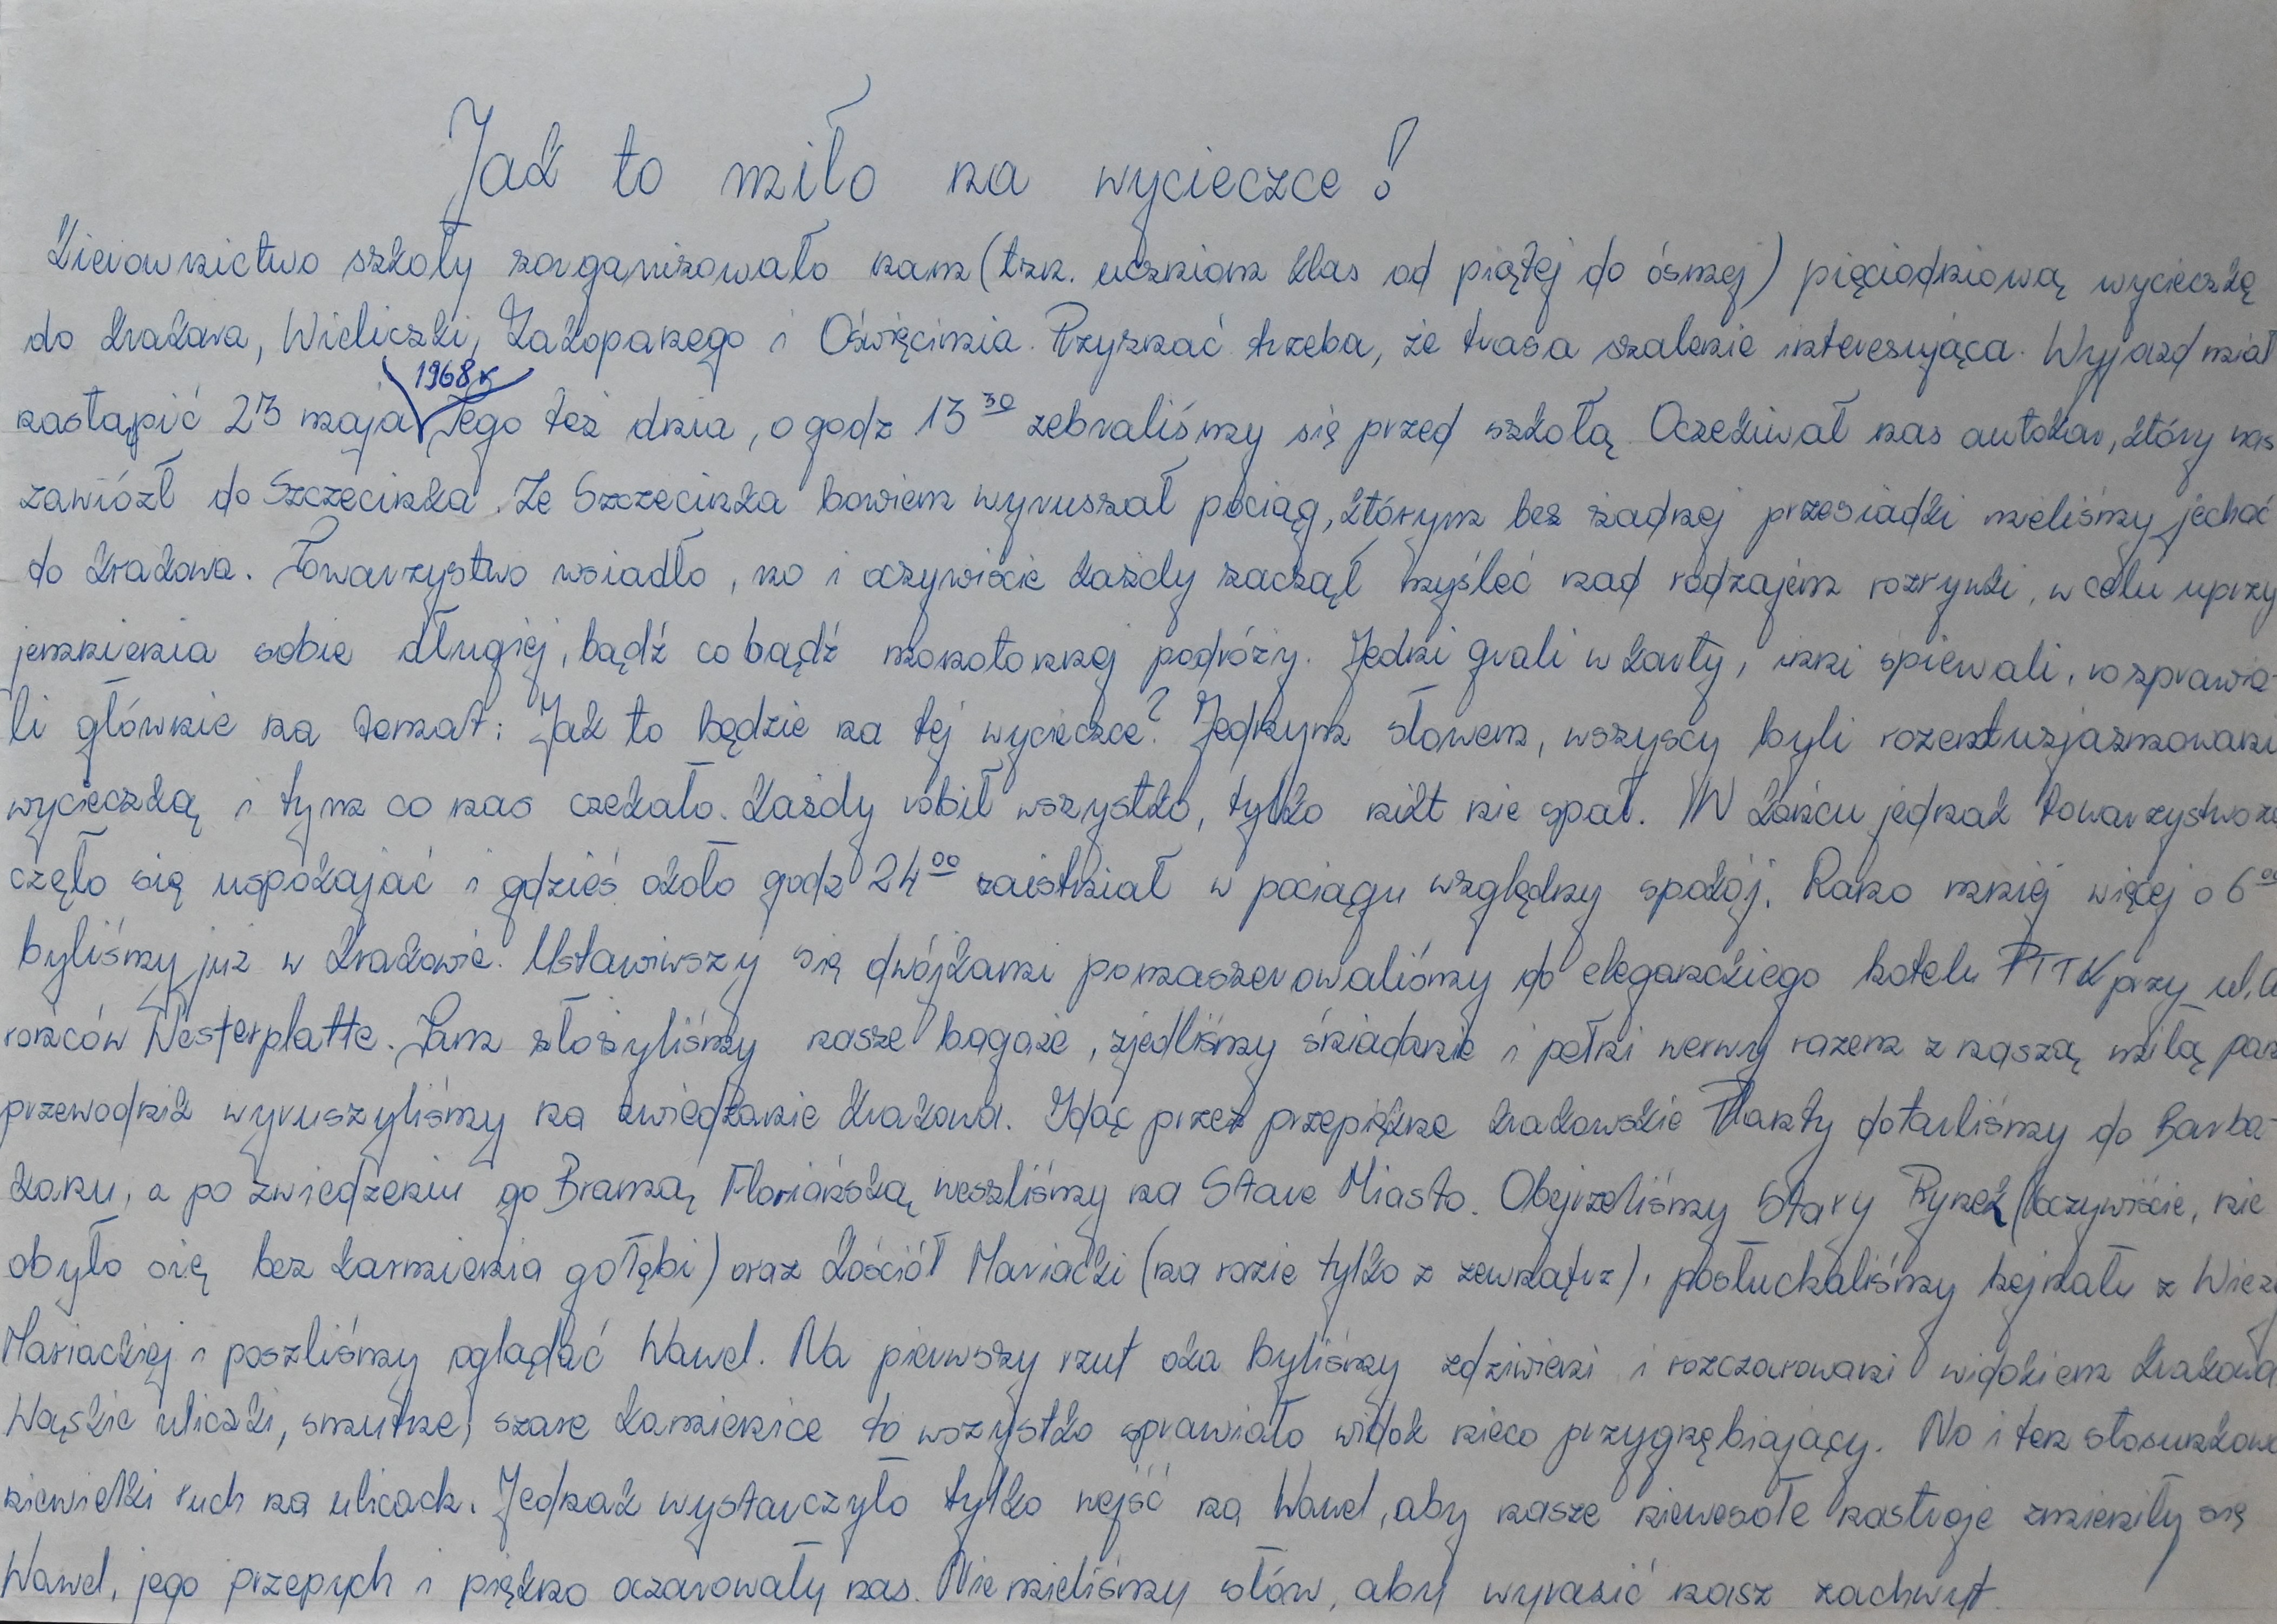 Jak to miło na wycieczce!
Kierownictwo szkoły zorganizowało nam (tzn. uczniom klas od piątej do ósmej) pięciodniową wycieczkę
do Krakowa, Wieliczki, Zakopanego i Oświęcimia. Przyznać trzeba, że trasa szalenie interesująca. Wyjazd miał
1968 r
nastąpić 23 maja. Tego też dnia, o godz 13 30 zebraliśmy się przed szkołą. Oczekiwał nas autokar, który nas
zawiózł do Szczecinka. Ze Szczecinka bowiem wyruszał pociąg, którym bez żadnej przesiadki mieliśmy jechać
do Krakowa. Towarzystwo wsiadło, no i oczywiście każdy zaczął myśleć nad rodzajem rozrywki, w celu uprzy
jemnienia sobie długiej, bądź co bądź monotonnej podróży. Jedni grali w karty, inni śpiewali, rozprawia-
li głównie na temat: Jak to będzie na tej wycieczce? Jednym słowem, wszyscy byli rozentuzjazmowani
wycieczką i tym co nas czekało. Każdy robił wszystko, tylko nikt nie spał. W końcu jednak towarzystwo za
częło się uspokajać i gdzieś około godz 24 00 zaistniał w pociągu względny spokój. Rano mniej więcej o 6 00
byliśmy już w Krakowie. Ustawiwszy się dwójkami pomaszerowaliśmy do eleganckiego hotelu PTTK przy ul.
ronców Westerplatte. Tam złożyliśmy nasze bagaże, zjedliśmy śniadanie i pełni werwy razem z naszą miłą pan
przewodnik wyruszyliśmy na zwiedzanie Krakowa. Idąc przez przepiękne krakowskie Planty dotarliśmy do Barba-
kanu, a po zwiedzeniu go Bramą Floriańską weszliśmy na Stare Miasto. Obejrzeliśmy Stary Rynek (oczywiście, nie
obyło się bez karmienia gołębi) oraz Kościół Mariacki (na razie tylko z zewnątrz), posłuchaliśmy hejnału z Wieży
Mariackiej i poszliśmy oglądać Wawel. Na pierwszy rzut oka byliśmy zdziwieni i rozczarowani widokiem Krakowa
Wąskie uliczki, smutne, szare kamienice to wszystko sprawiało widok nieco przygnębiający. No i ten stosunkowo
niewielki ruch na ulicach. Jednak wystarczyło tylko wejść na Wawel, aby nasze niewesołe nastroje zmieniły się
Wawel, jego przepych i piękno oczarowały nas. Nie mieliśmy słów, aby wyrazić nasz zachwyt.